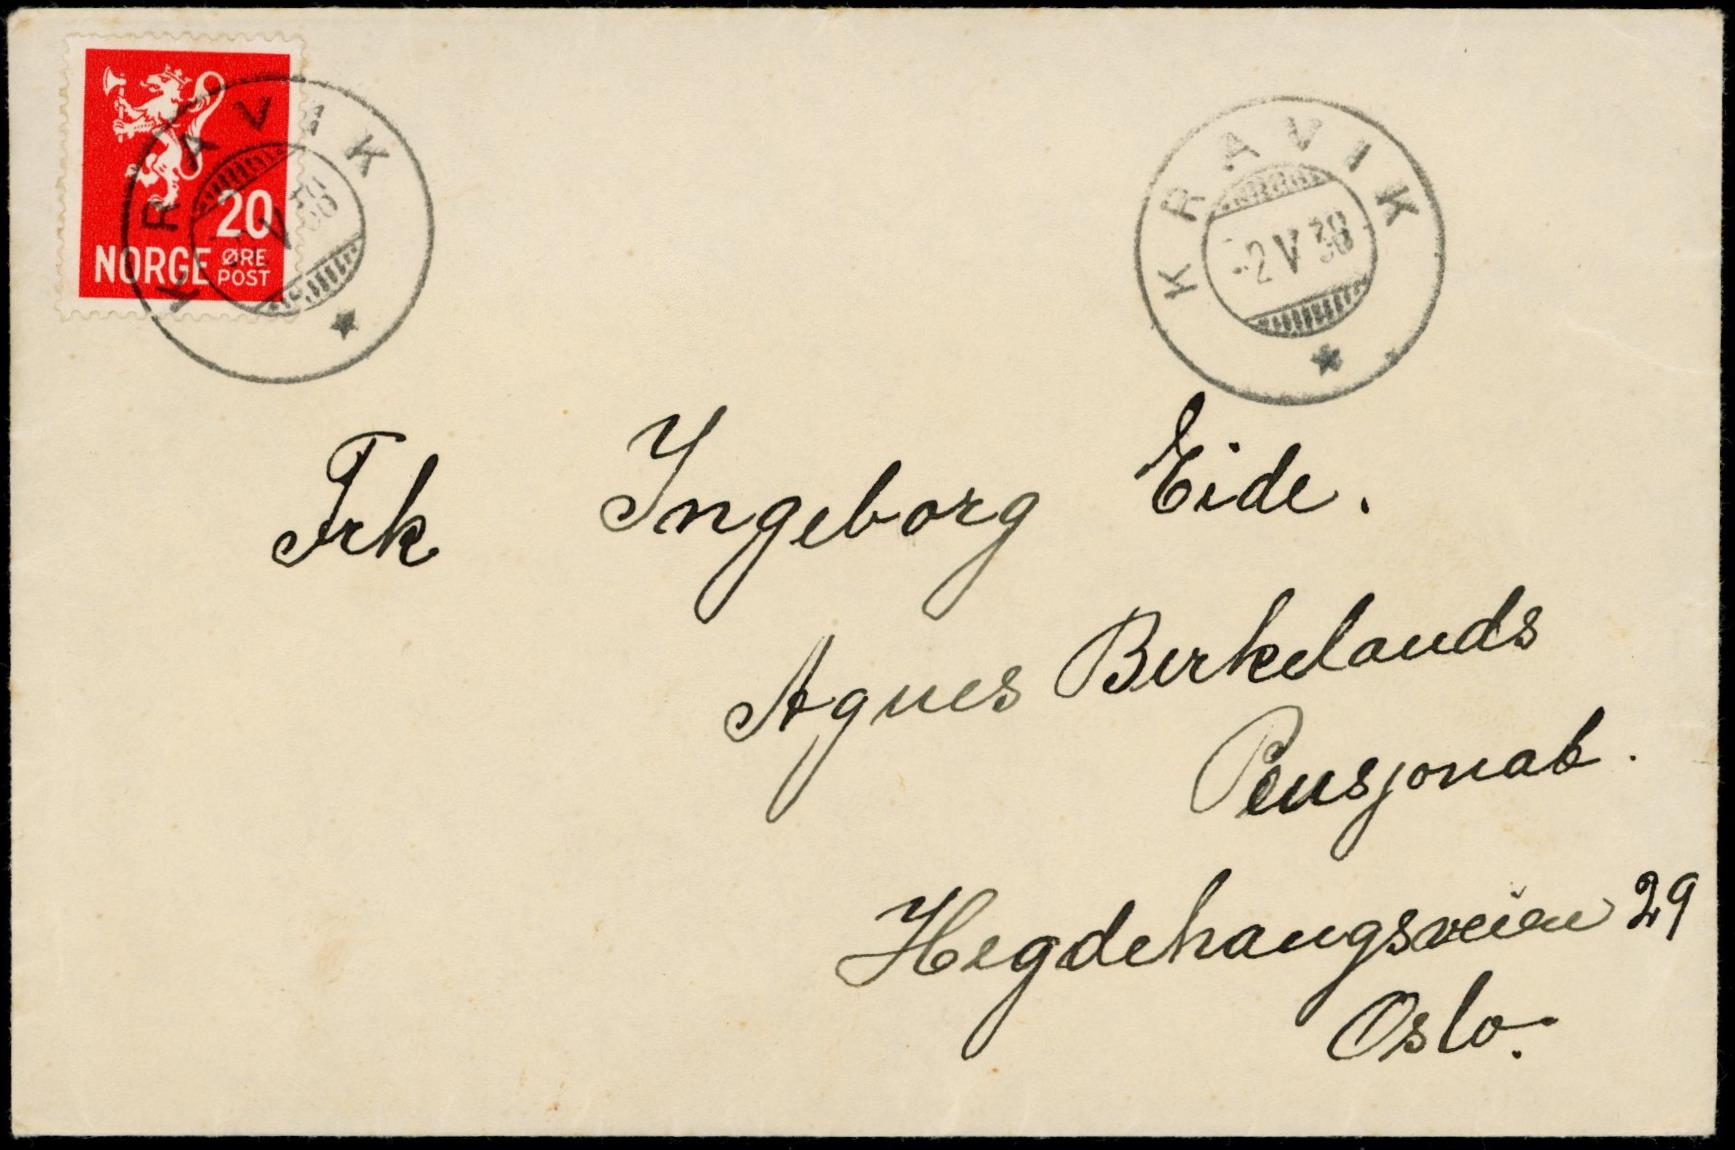 20
NORGE ØRE
POST
KRAVIK
KRAVIK
-2 V 38
Frk Ingeborg Eide.
Agnes Birkelands
Pensjonat.
Hegdehaugsveien 29
Oslo.